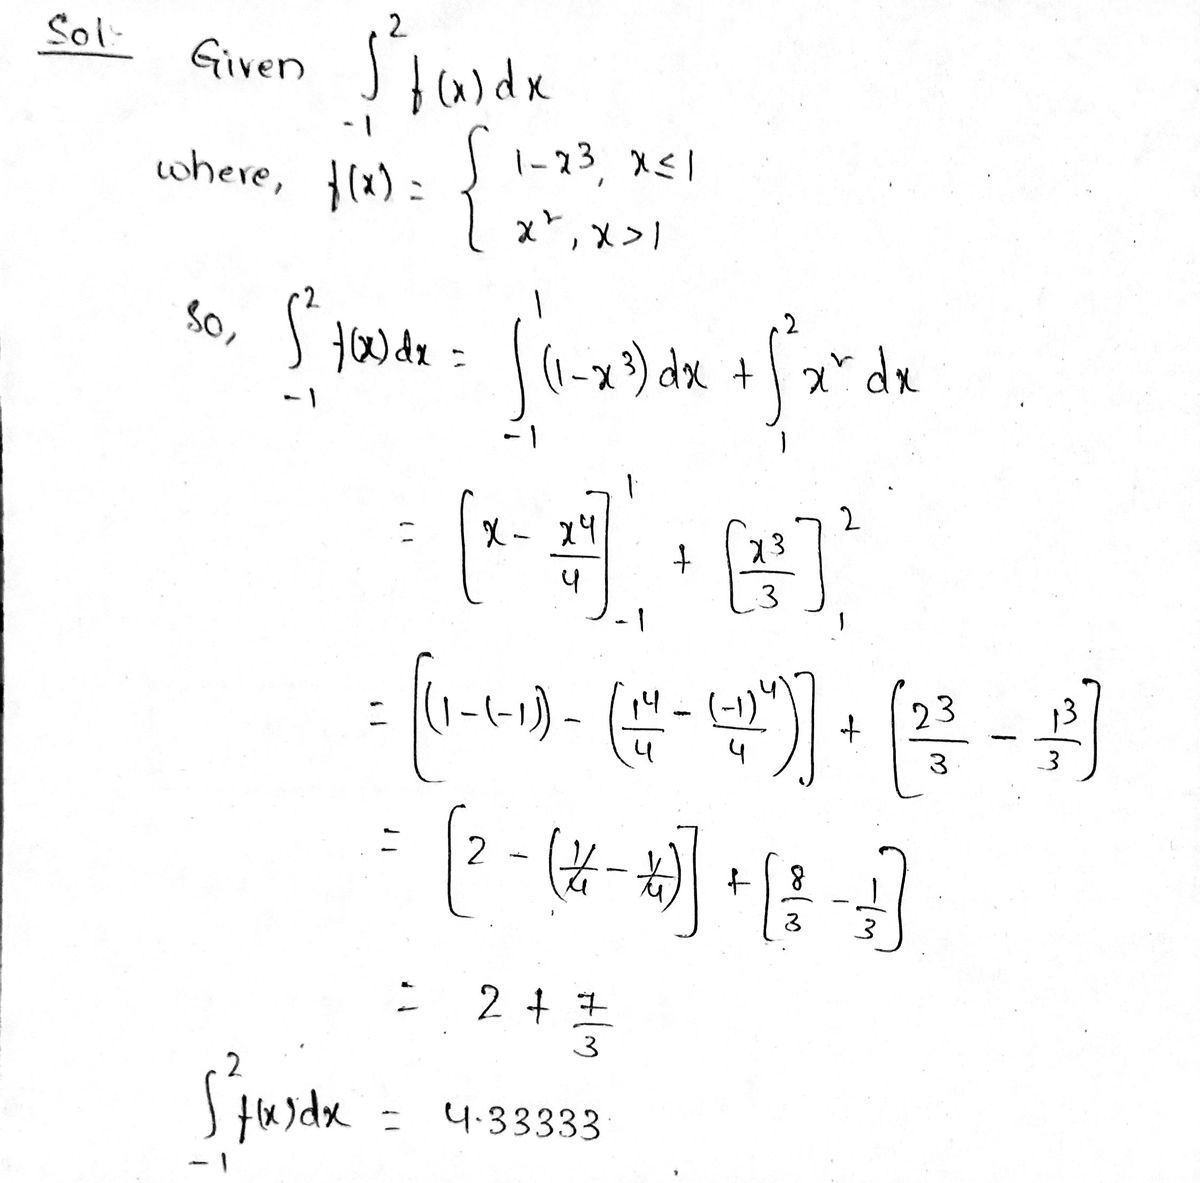 Sol:- Given ∫_{-1}^{2} f(x) dx
where, f(x) = { 1-x^3, x ≤ 1
x^2, x > 1
So, ∫_{-1}^{2} f(x) dx = ∫_{-1}^{1} (1-x^3) dx + ∫_{1}^{2} x^2 dx
= [x - x^4/4]_{-1}^{1} + [x^3/3]_{1}^{2}
= [(1-(-1)) - (1^4/4 - (-1)^4/4)] + [2^3/3 - 1^3/3]
= [2 - (1/4 - 1/4)] + [8/3 - 1/3]
= 2 + 7/3
∫_{-1}^{2} f(x) dx = 4.33333